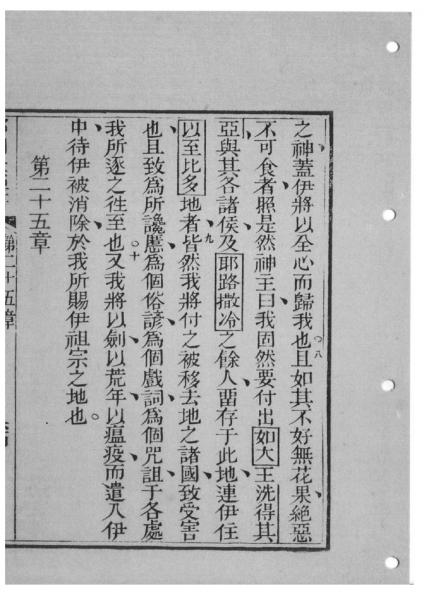 之神蓋伊將以全心而歸我也且如其不好無花果絕惡
不可食者照是然神王曰我固然要付出如大王洗得其
亞與其各諸侯及耶路撒冷之餘人畱存于此地連伊住
以至比多地者皆然我將付之被移去地之諸國致受害
也且致為所讒慝為個俗諺為個戲詞為個咒詛于各處
我所逐之徃至也又我將以劍以荒年以瘟疫而遣入伊
中待伊被消除於我所賜伊祖宗之地也
第二十五章
第二十五章
八
九
十